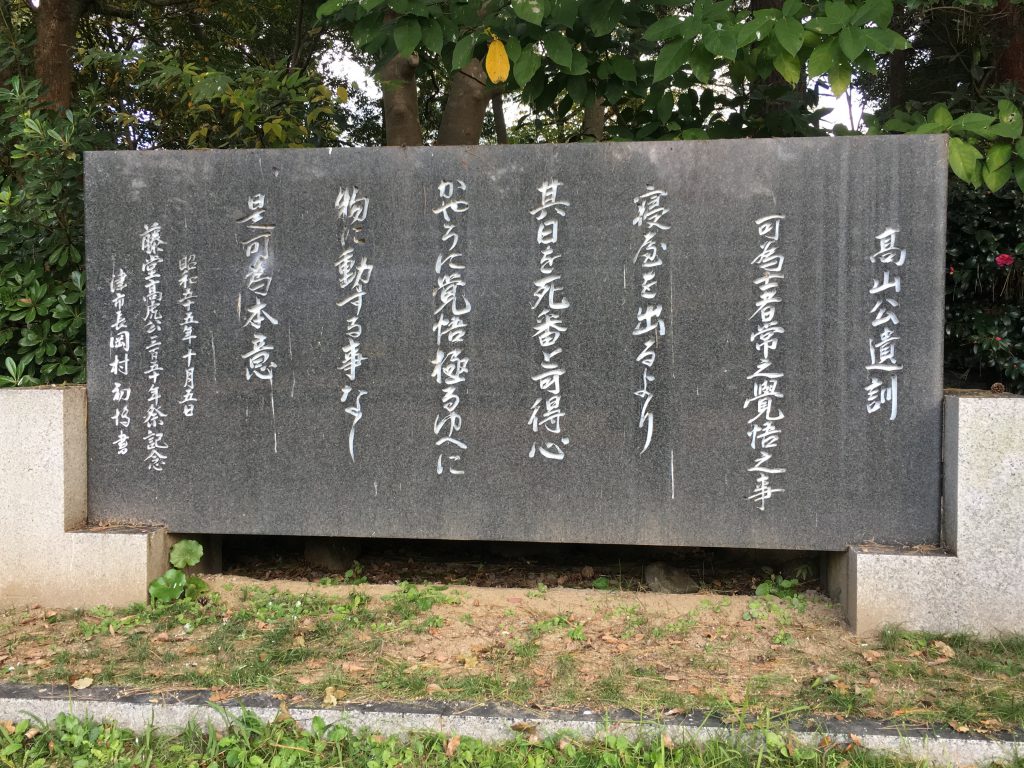 高山公遺訓
可為士者常之覺悟之事
寝屋を出るより
其日を死番と可得心
かやうに覚悟極るゆへに
物に動する事なし
是可為本意
昭和五十五年十月五日
藤堂高虎公三百五十年祭記念
津市長岡村初博書